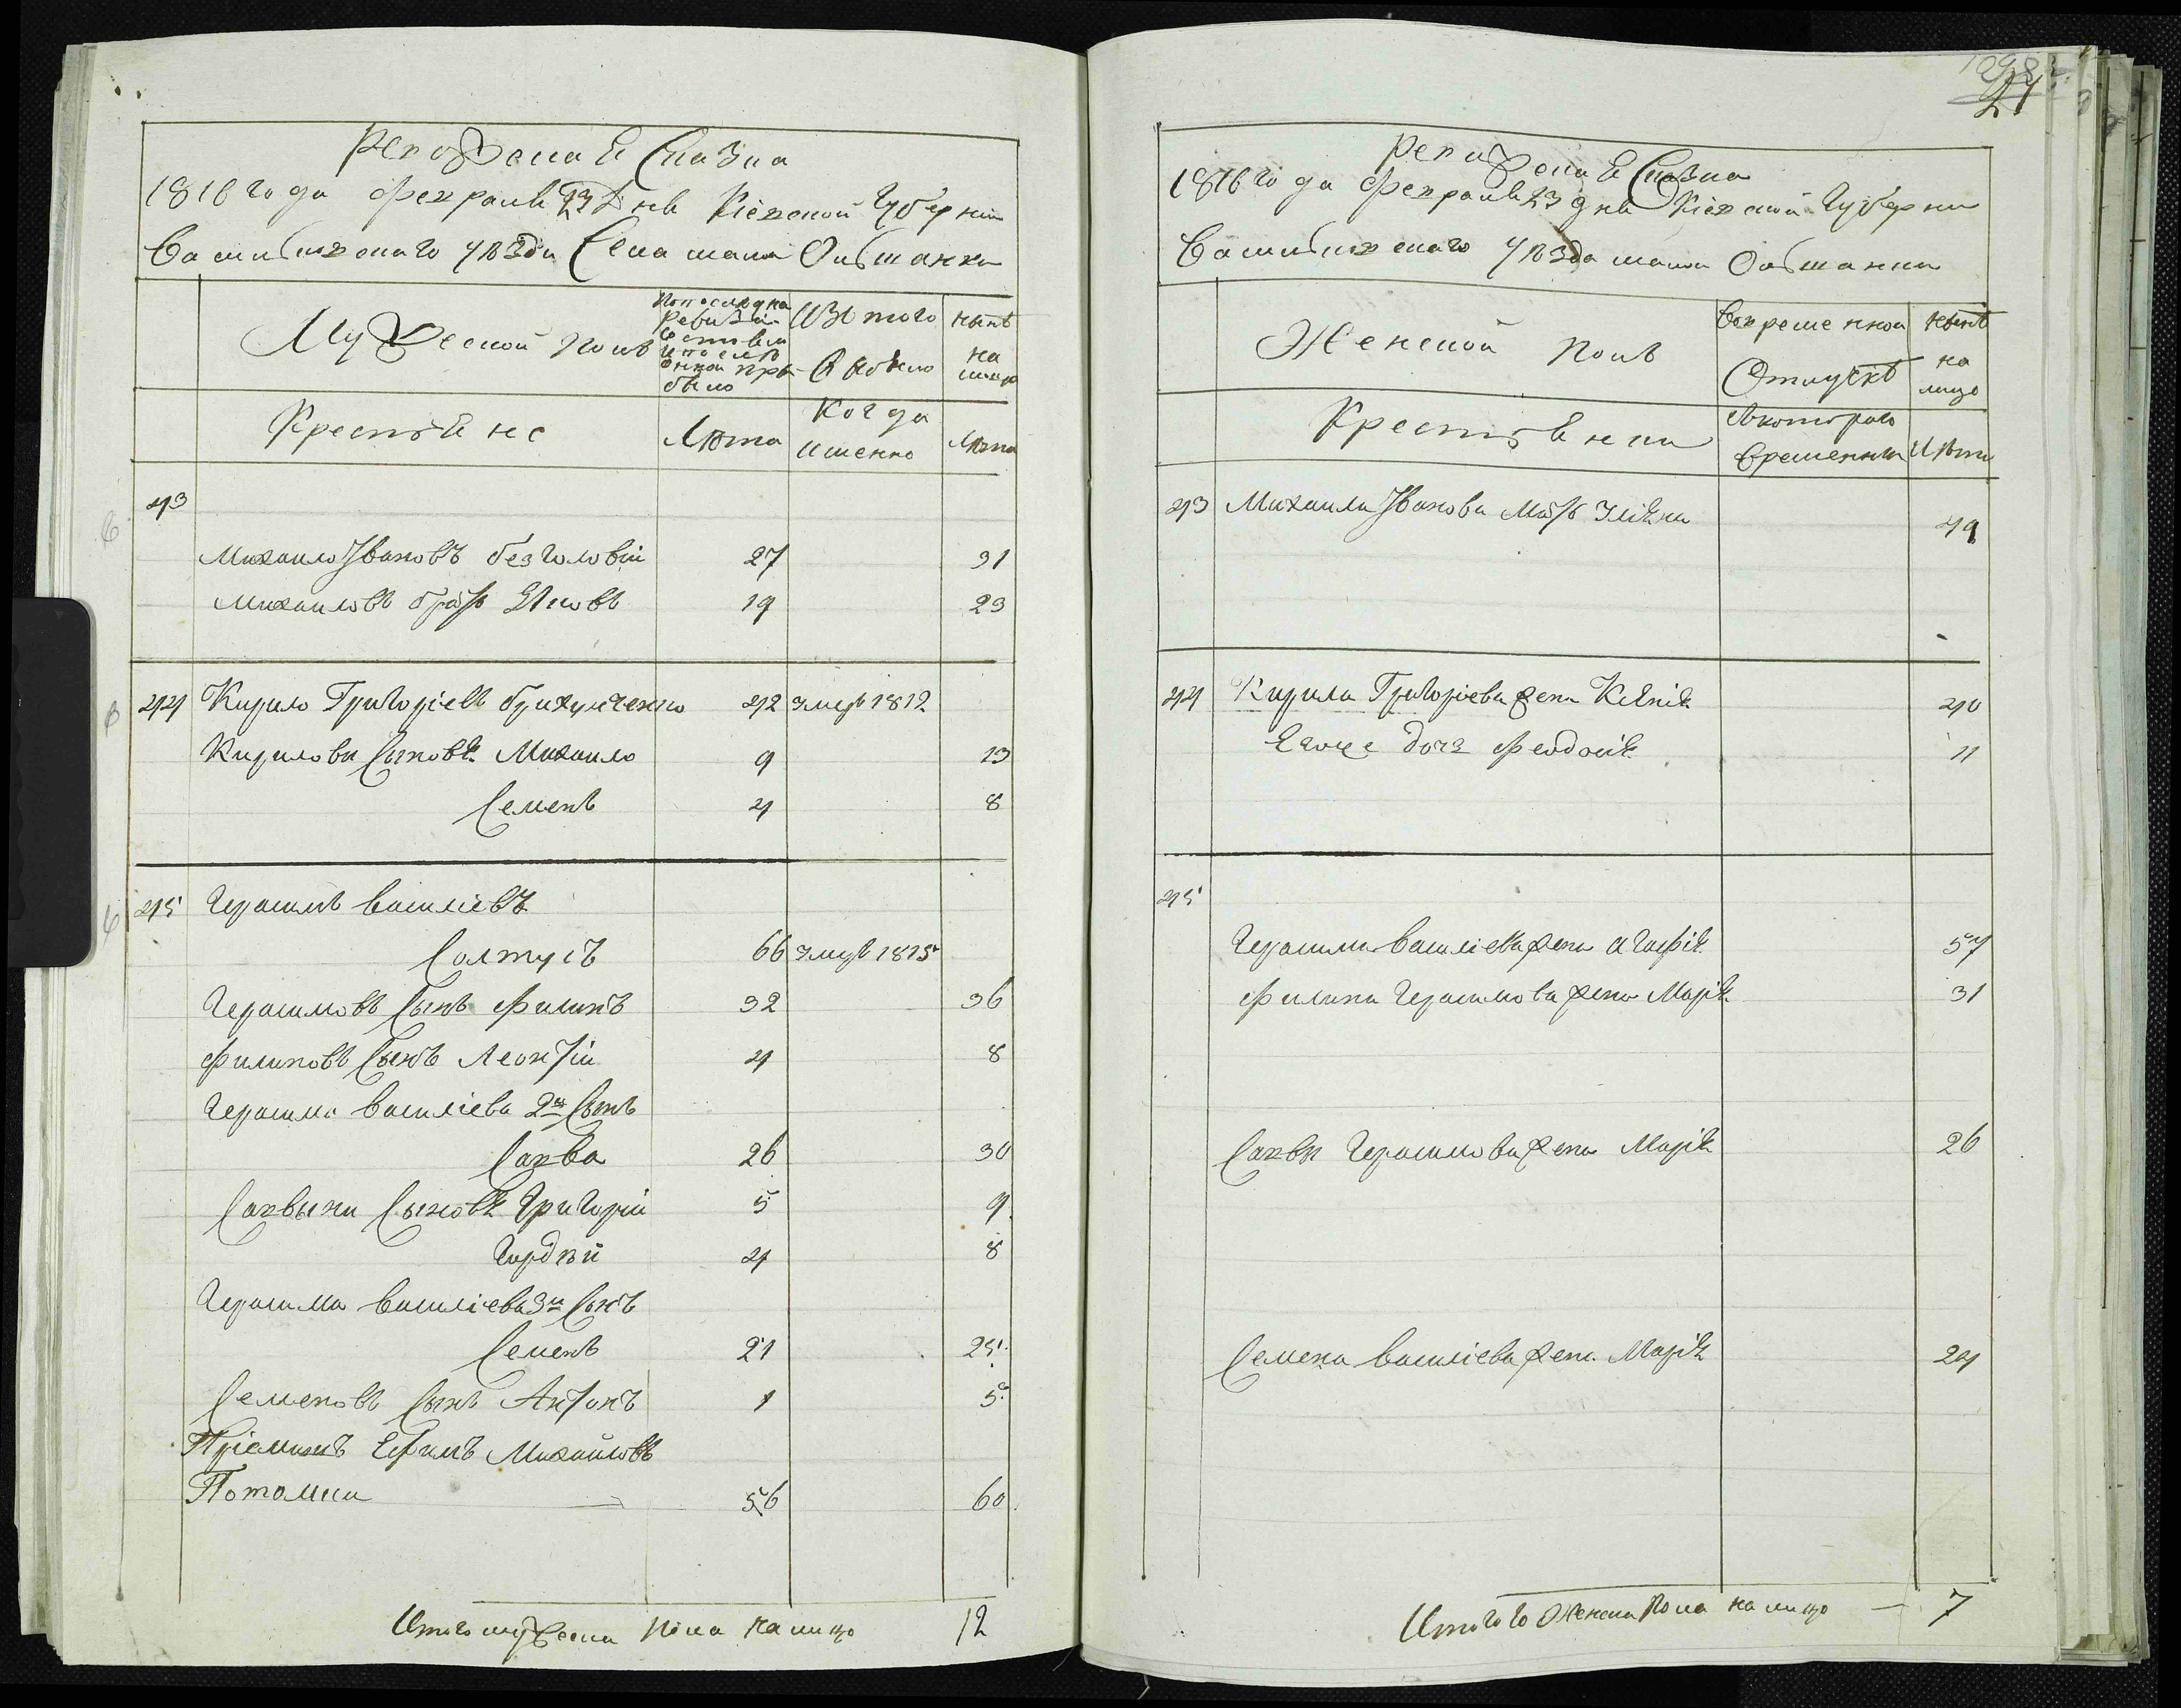 Ревизская Сказка
1816 года Февраля 23 дня Кіевской Губерніи
Васильковскаго уѣзда Села мало Ольшанки
Мужеской полъ
По последна ревизіи состояло и после оной прибыло
Изъ того выбыло
нынѣ на лицо
Крестяне
Лѣта
Когда именно
Лѣта
43
Михайло Ивановъ безголовій 27 31
Михайловъ братъ Яковъ 19 23
44 Кирило Григоріевъ 42 змеръ 1812
Кирилови Сыновя Михайло 9 13
Семенъ 4 8
45 Герасимъ Василіевъ
Солтусъ 66 змеръ 1815
Герасимовъ Сынъ Филипъ 32 36
Филиповъ Сынъ Леонтій 4 8
Герасима Василіева 2й Сынъ
Савва 26 30
Саввыни Сыновя Григорій 5 9
Гордѣй 4 8
Герасима Василіева 3й Сынъ
Семенъ 21 25
Семеновъ Сынъ Антонъ 1 5
Пріемишъ Ефимъ Михайловъ
Потомки 56 60
Итого мужеска пола на лицо 12
41
Ревизская Сказка
1816 года Февраля 23 дня Кіевской Губерни
Васильковскаго уѣзда малой Ольшанки
Женской полъ
Во временной Отлучкѣ
нынѣ на лицо
Крестянки
Съ котораго Времени
Лѣта
43 Михаила Иванова Мать 49
44 Кирила Григоріева жена Ксеня 40
Егоже дочъ Феодосія 11
45
Герасима Василіева жена Агафія 54
Филипа Герасимова жена Марія 31
Саввы Герасимова жена Марія 26
Семена Василіева жена Марія 24
Итого Женска Пола на лицо — 7